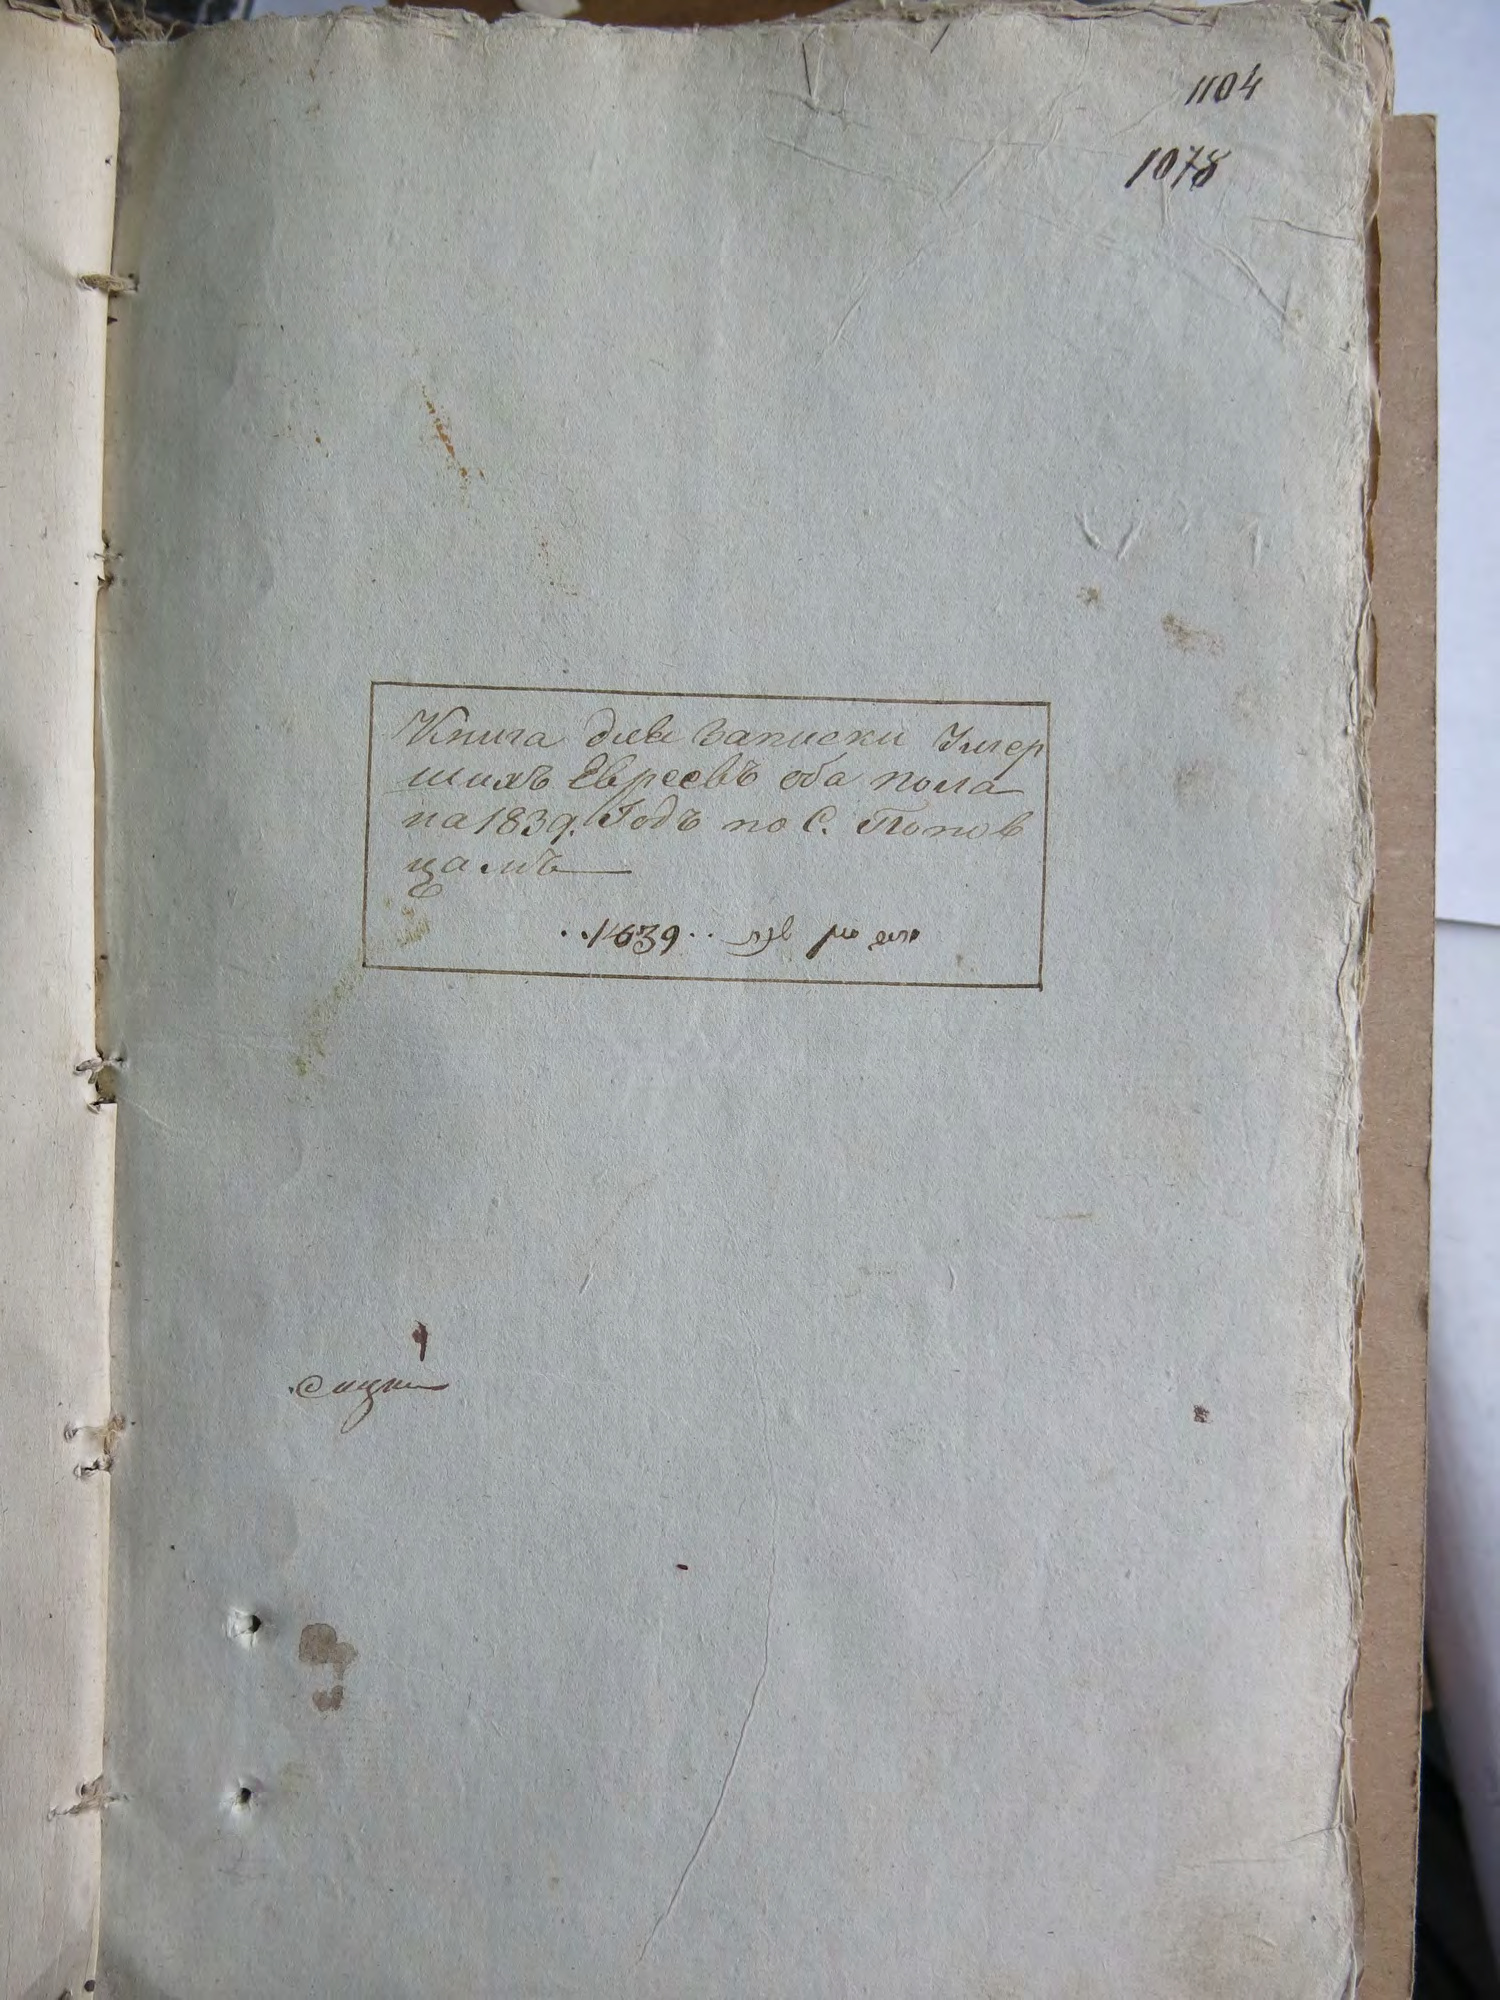 1104
1078
Книга для записки Умер
шихъ Евреевъ оба пола
на 1839. Годъ по С. Попов
цамъ
1839